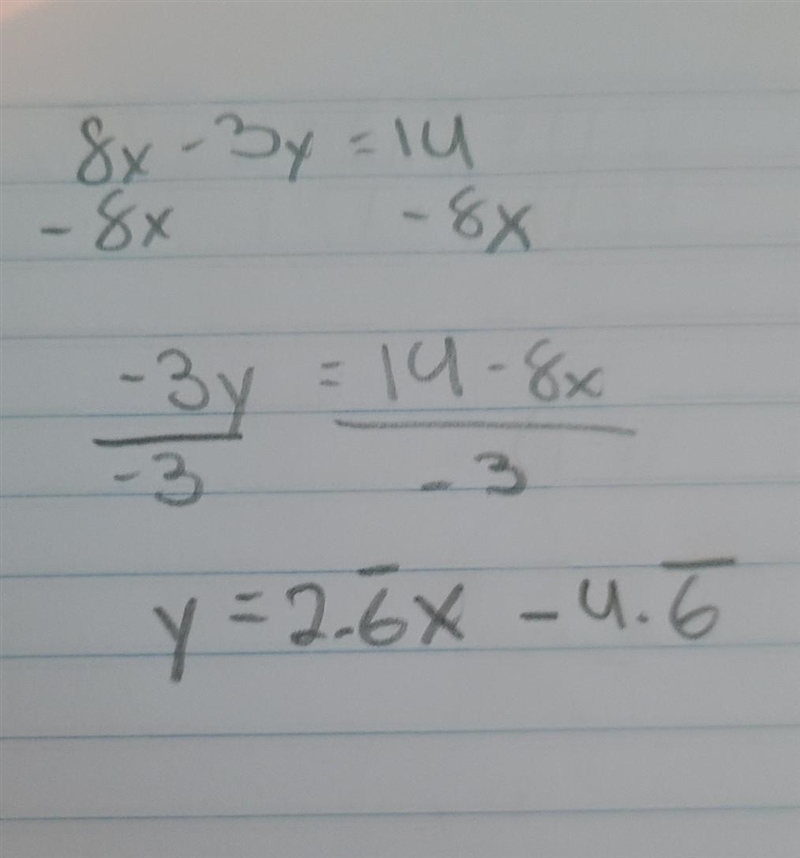 8x - 3y = 14
- 8x - 8x
-3y = 14 - 8x
-3 -3
y = 2.6̅x - 4.6̅